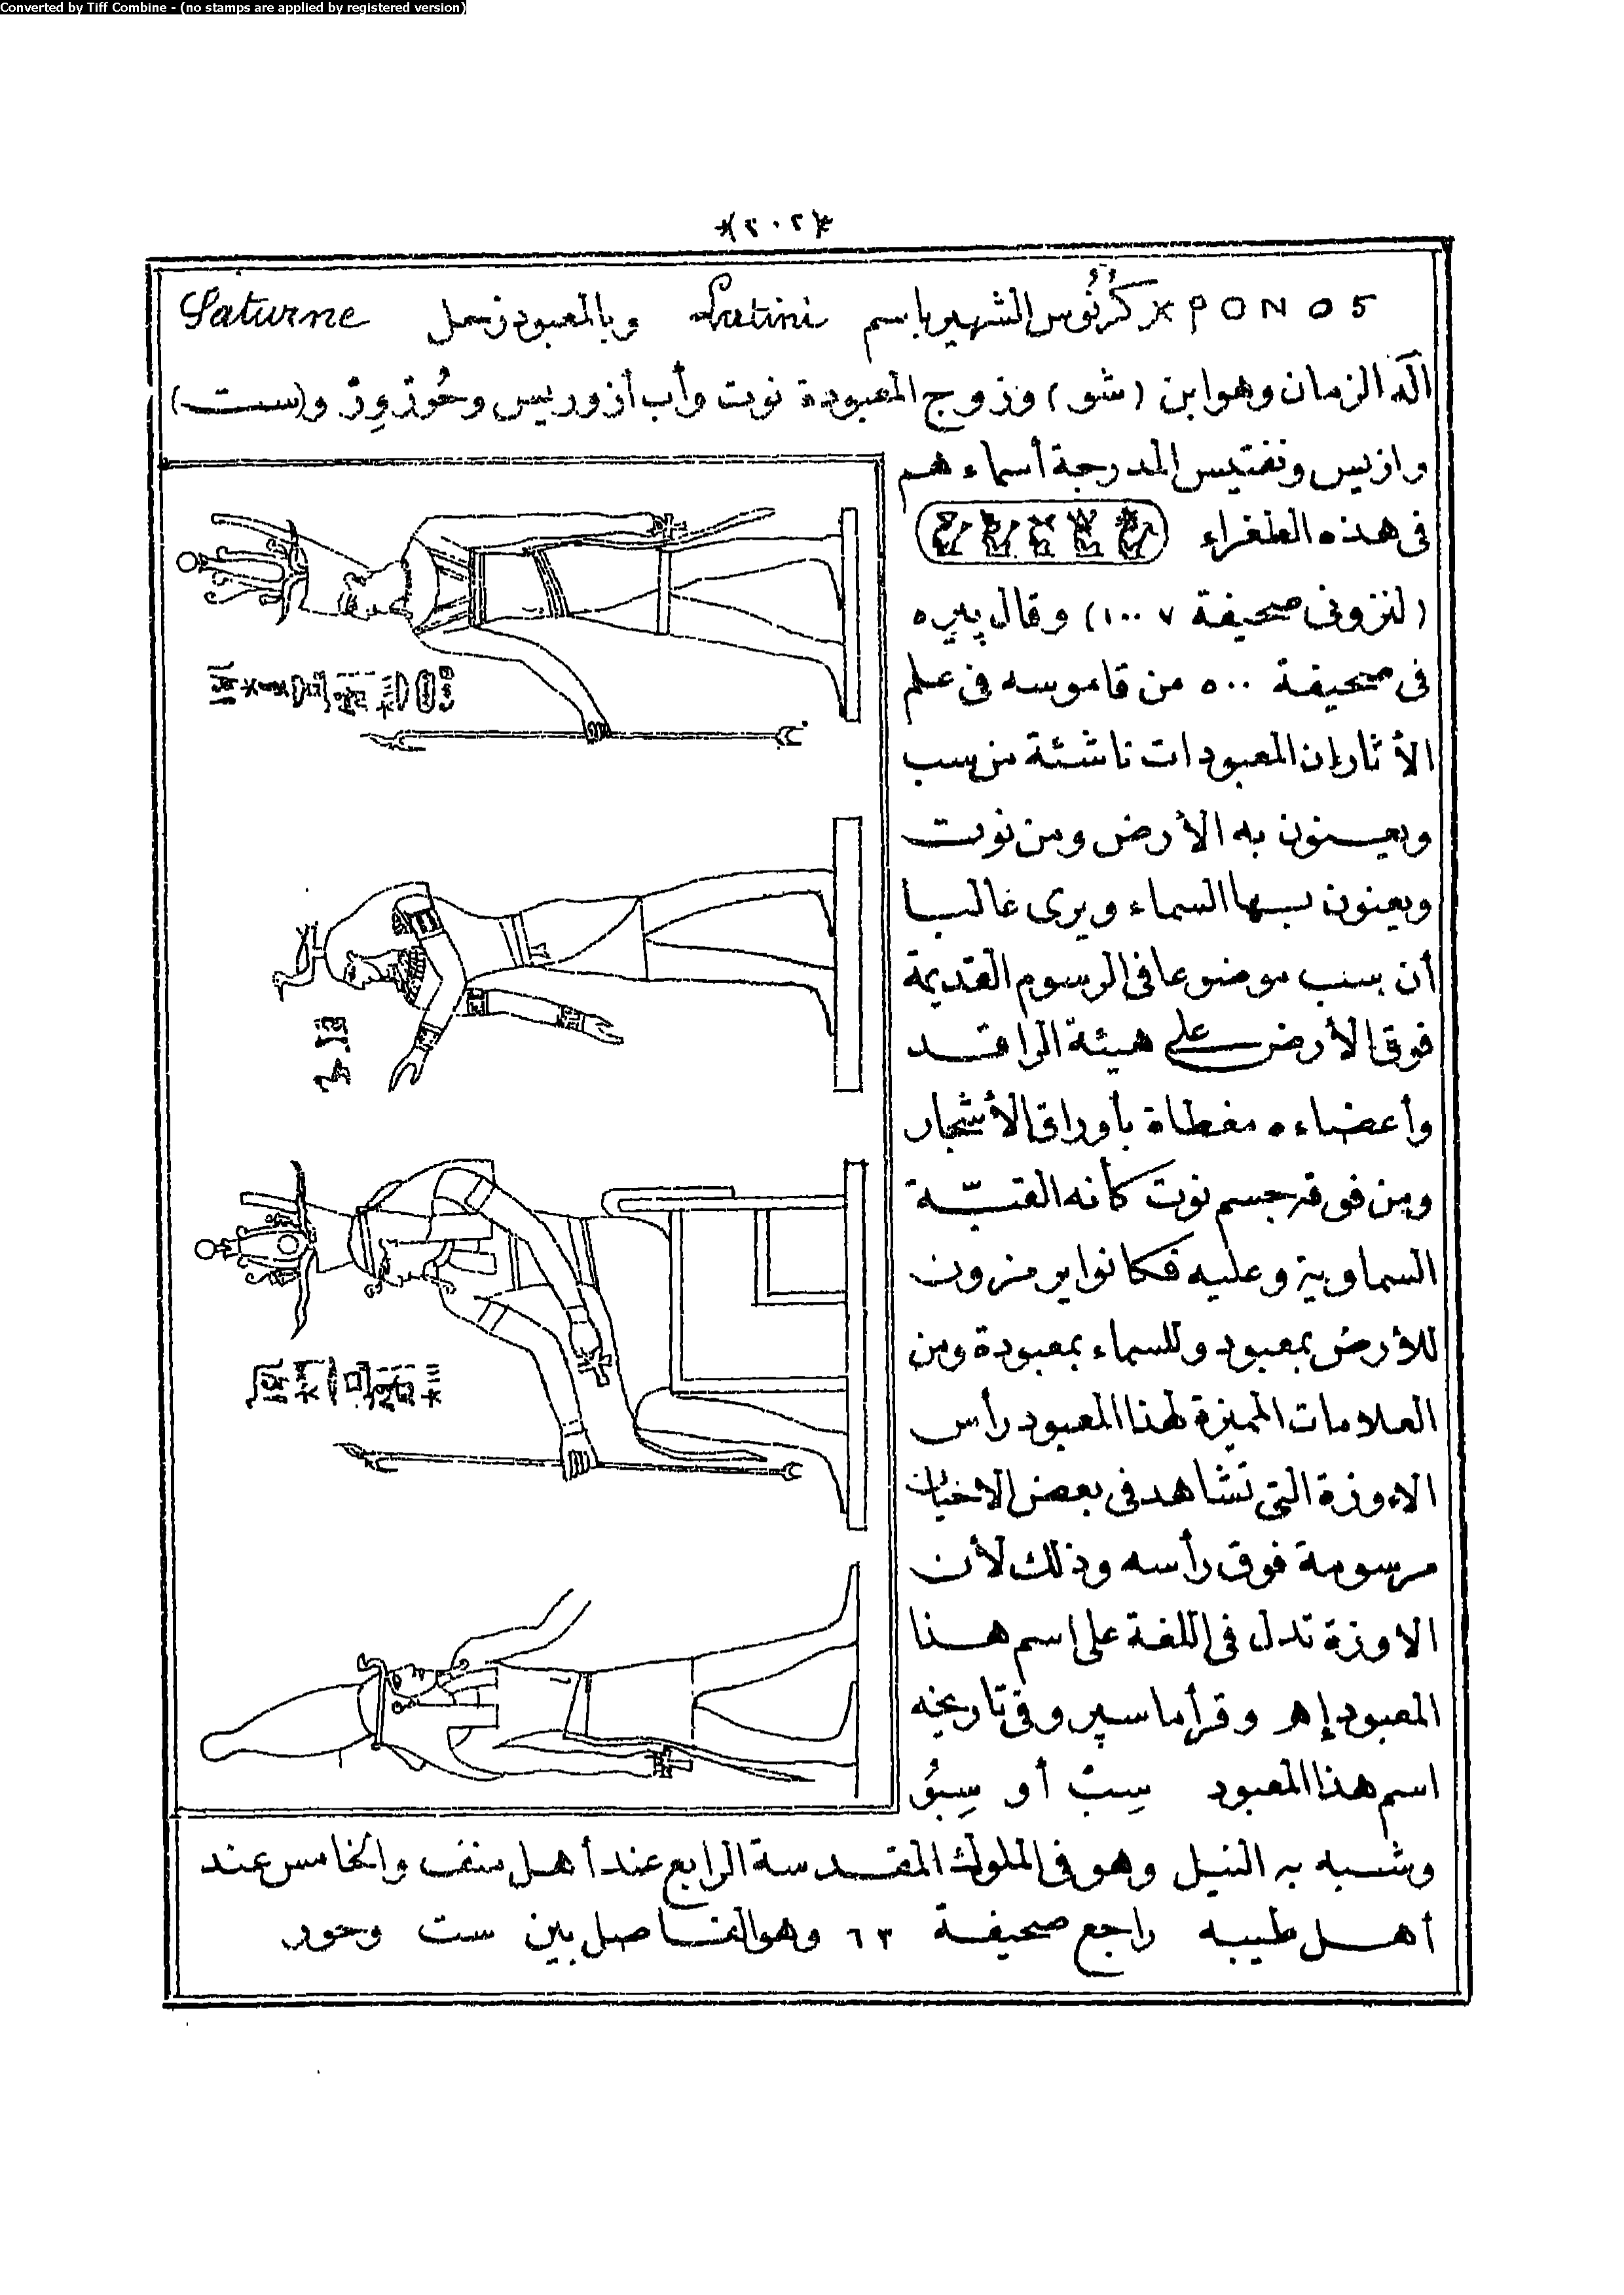 Converted by Tiff Combine - (no stamps are applied by registered version)
*(٢٠٢)*
XPONO5 كرُنُوس الشهير باسم Latini وبالمعبود زحل Saturne
الٓه الزمان وهو ابن (شو) وزوج المعبودة نوت وأب أزوريس وحُوَرْوِرْ و(ست)
وازيس ونفتيس المدرجة أسماءهم
فى هذه الطغراء
(لنزونى صحيفة ١٠٠٧) وقال پيره
فى صحيفة ٥٠٠ من قاموسه فى علم
الأثار إن المعبودات ناشئة من سب
ويعنون به الأرض ومن نوت
ويعنون بها السماء ويرى غالبا
أن سب موضوعا فى الرسوم القديمة
فوق الأرض على هيئة الراقد
وأعضاءه مغطاة بأوراق الأشجار
ومن فوقه جسم نوت كأنه القبّة
السماوية وعليه فكانوا يرمزون
للأرض بمعبود وللسماء بمعبودة ومن
العلامات المميزة لهذا المعبود رأس
الاوزة التى تشاهد فى بعض الاخيان
مرسومة فوق رأسه وذلك لأن
الاوزة تدل فى اللغة على اسم هذا
المعبود إهـ وقرأ ماسپرو فى تاريخه
اسم هذا المعبود سِبْ أو سِبُو
وشبه به النيل وهو فى الملوك المقدسة الرابع عند أهل منف والخامس عند
أهل طيبه راجع صحيفة ٦٣ وهو الفاصل بين ست وحور